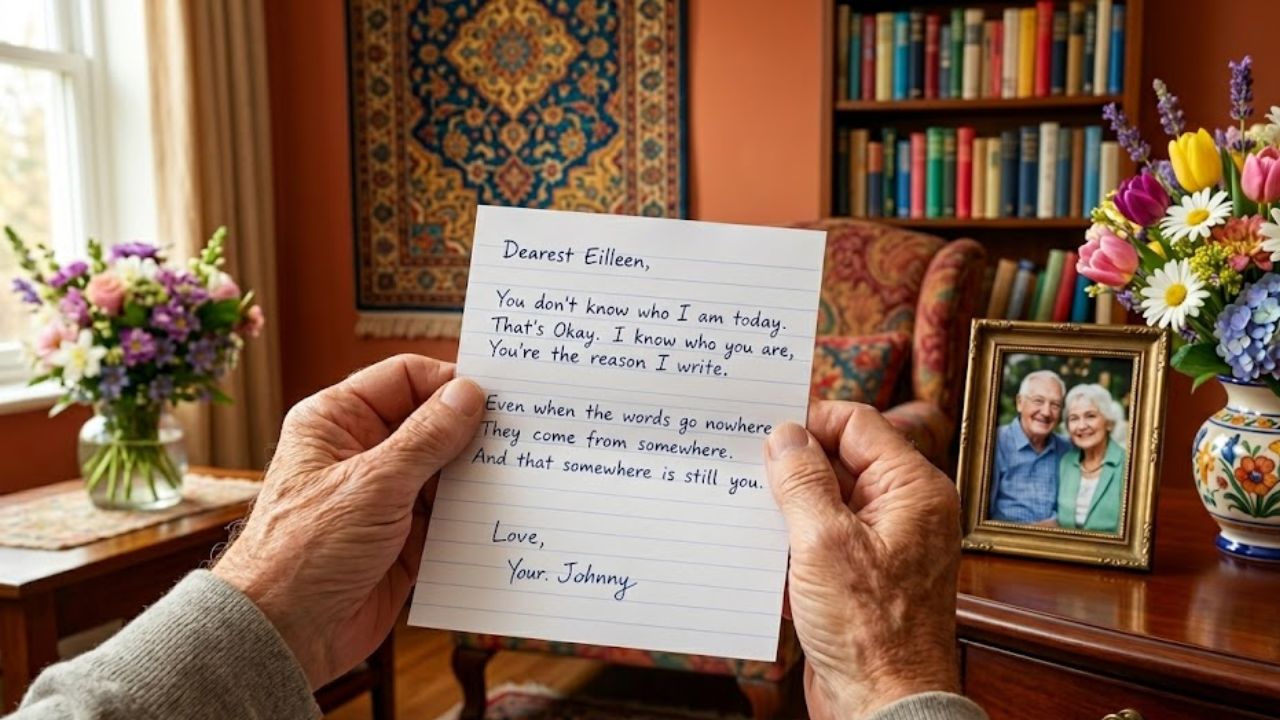 Dearest Eilleen,
You don't know who I am today.
That's Okay. I know who you are,
You're the reason I write.
Even when the words go nowhere
They come from somewhere.
And that somewhere is still you.
Love,
Your. Johnny